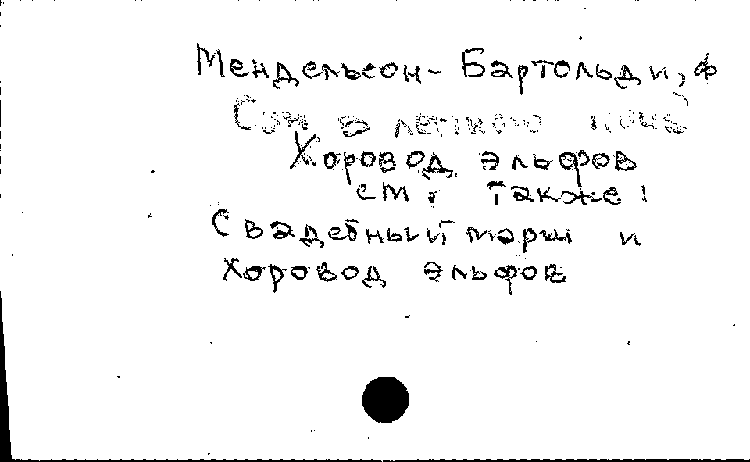 Мендельсон-Бартольди, Ф
Сон в летнюю ночь
Хоровод эльфов
см. также:
Свадебный марш и
хоровод эльфов